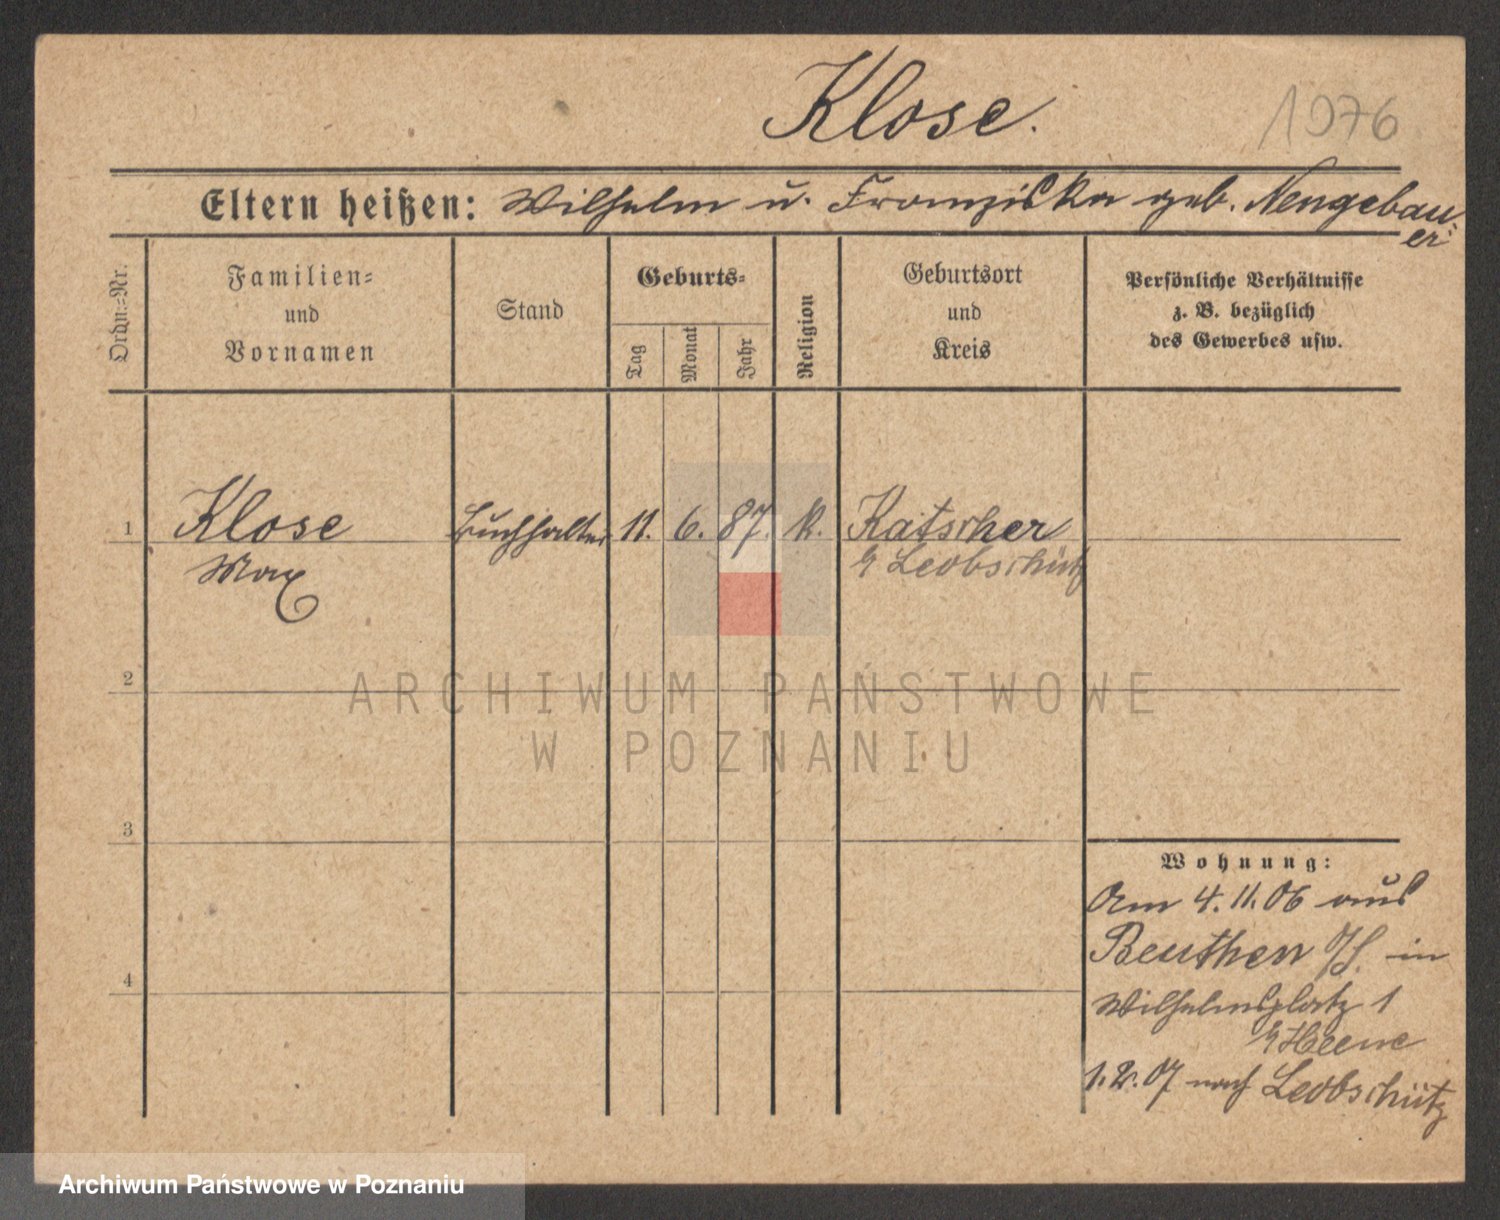 Klose.
1976
Eltern heißen: Wilhelm u. Franziska geb. Neugebau-
er
Ordn.-Nr.
Familien-
und
Vornamen
Stand
Geburts-
Tag
Monat
Jahr
Religion
Geburtsort
und
Kreis
Persönliche Verhältnisse
z. B. bezüglich
des Gewerbes usw.
1
Klose
Max
Buchhalter
11.
6.
87.
k.
Katscher
Leobschütz
2
ARCHIWUM PAŃSTWOWE
W POZNANIU
3
4
Wohnung:
Am 4.11.06 aus
Beuthen O/S. in
Wilhelmsplatz 1
1.2.07 nach Leobschütz
Archiwum Państwowe w Poznaniu